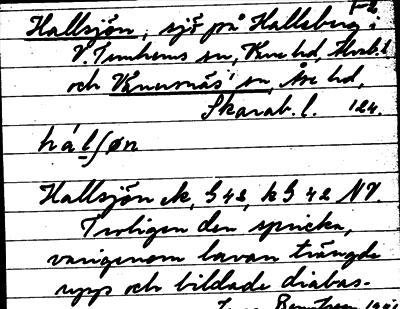 Hallsjön, sjö på Hallsberg i
V. Tunhems sn, Väne hd, Älvsb. l
och Vänersnäs' sn, Åse hd,
Skarab. l. 124.
hálſøn
Hallsjön ek, G 42, k G 42 NV.
Troligen den spricka,
varigenom lavan trängde
upp och bildade diabas-